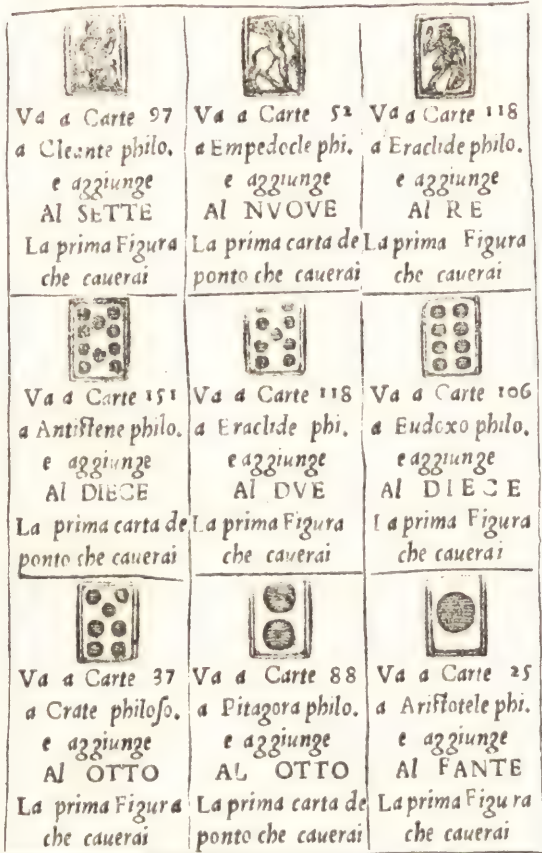 Va a Carte 97
a Cleante philo.
e aggiunge
Al SETTE
La prima Figura
che cauerai
Va a Carte 52
a Empedocle phi.
e aggiunge
Al NVOVE
La prima carta de
ponto che cauerai
Va a Carte 118
a Eraclide philo.
e aggiunge
Al RE
La prima Figura
che cauerai
Va a Carte 151
a Antiſtene philo.
e aggiunge
Al DIECE
La prima carta de
ponto che cauerai
Va a Carte 118
a Eraclide phi.
e aggiunge
Al DVE
La prima Figura
che cauerai
Va a Carte 106
a Eudoxo philo.
e aggiunge
Al DIECE
La prima Figura
che cauerai
Va a Carte 37
a Crate philoſo.
e aggiunge
Al OTTO
La prima Figura
che cauerai
Va a Carte 88
a Pitagora philo.
e aggiunge
AL OTTO
La prima carta de
ponto che cauerai
Va a Carte 25
a Ariſtotele phi.
e aggiunge
Al FANTE
La prima Figura
che cauerai